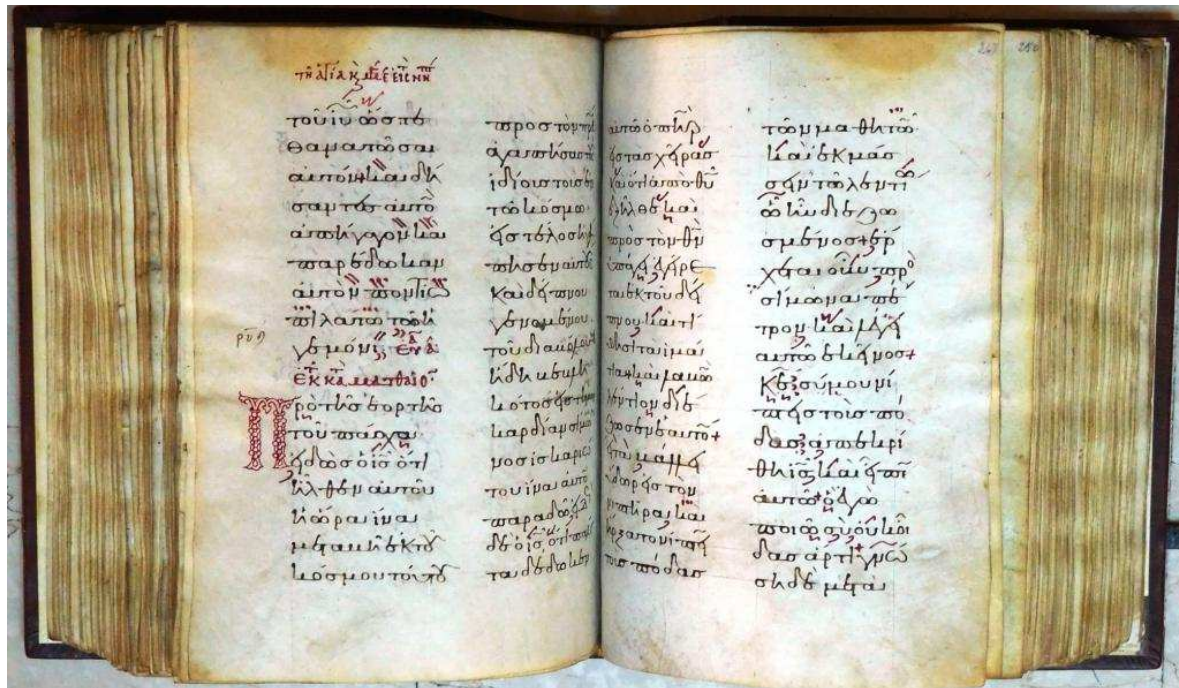 τοῦ ἰῦ ὥστε
θανατῶσαι
αὐτόν+ καὶ δή
σαντες αὐτὸ
ἀπήγαγον καὶ
παρέδωκαν
αὐτὸν ποντίω
πιλάτω τῶ ἡ
γεμόνι
ἐκ κτ ματθαῖο
Πρὸ τῆς ἑορτῆς
τοῦ πάσχα
εἰδὼς ὁ ἰς ὅτι
ἦλθεν αὐτοῦ
ἡ ὥρα ἵνα
μεταβῆ ἐκ τοῦ
κόσμου τούτου
πρὸς τὸν πρα
ἀγαπήσας τοὺς
ἰδίους τοὺς ἐν
τῶ κόσμω
εἰς τέλος ἠγά
πησεν αὐτοὺς
καὶ δείπνου
γενομένου
τοῦ διαβόλου
ἤδη βεβλη
κότος εἰς τὴν
καρδίαν σίμω
νος ἰσκαριώ
του ἵνα αὐτὸ
παραδῶ εἰδὼς
δὲ ὁ ἰς ὅτι πάν
τα δέδωκεν
αὐτῶ ὁ πηρ
εἰς τὰς χεῖρας
καὶ ὅτι ἀπὸ θῦ
ἐξῆλθε καὶ
πρὸς τὸν θν
ὑπάγει ἐγείρε
ται ἐκ τοῦ δεί
πνου καὶ τί
θησι τὰ ἱμά
τια+ καὶ λαβὼν
λέντιον διέ
ζωσεν ἑαυτό+
εἶτα βάλλει
ὕδωρ εἰς τὸν
νιπτῆρα καὶ
ἤρξατο νίπτει
τοὺς πόδας
τῶν μαθητῶ
καὶ ἐκμάσ
σειν τῶ λεντίω
ὧ ἦν διεζω
σμένος+ ἔρ
χεται οὖν πρὸ
σίμωνα πέ
τρον καὶ λέγει
αὐτῶ ἐκεῖνος+
κε σύ μου νί
πτεις τοὺς πό
δας; ἀπεκρί
θη ις καὶ εἶπε
αὐτῶ+ ὃ ἐγὼ
ποιῶ σὺ οὐκ οἶ
δας ἄρτι γνώ
σει δὲ μετὰ